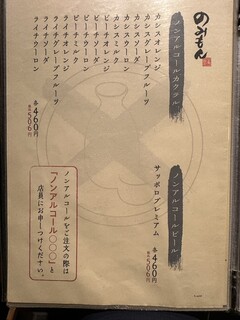 のみもん
ノンアルコールカクテル
カシスオレンジ
カシスグレープフルーツ
カシスソーダ
カシスウーロン
カシスミルク
ピーチオレンジ
ピーチグレープフルーツ
ピーチソーダ
ピーチウーロン
ピーチミルク
ライチオレンジ
ライチグレープフルーツ
ライチソーダ
ライチウーロン
各460円
税込506円
ノンアルコールビール
サッポロプレミアム
各460円
税込506円
ノンアルコールをご注文の際は
「ノンアルコール〇〇〇」と
店員にお申しつけください。